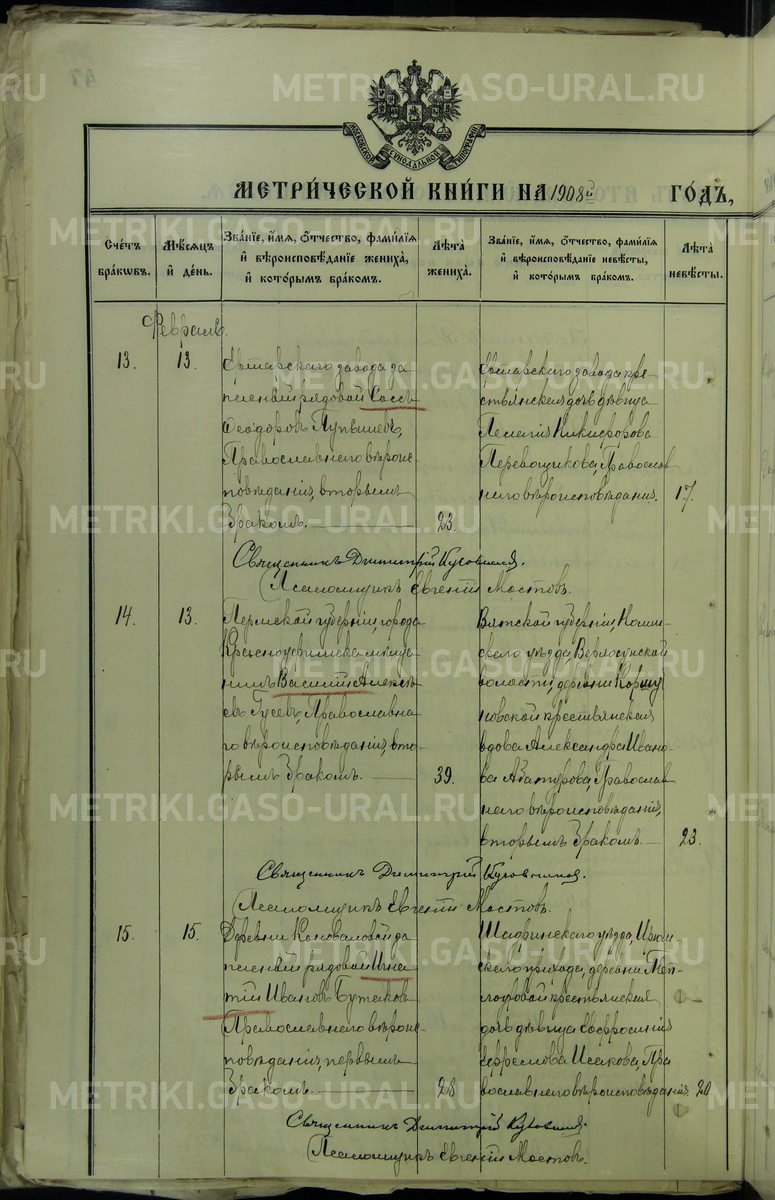 METRIKI.GASO-URAL.RU
МОСКОВСКОЙ СѴНОДАЛЬНОЙ ТИПОГРАФІИ
МЕТРИ́ЧЕСКОЙ КНИ́ГИ НА 1908й ГО́ДЪ,
Сче́тъ бра́кωвъ.
Мѣ́сяцъ и҆ де́нь.
Зва́нїе, и҆́мя, ѻ҆́тчество, фами́лїя и҆ вѣроисповѣ́данїе жениха̀, и҆ кото́рымъ бра́комъ.
Лѣ́та жениха̀.
Зва́нїе, и҆́мя, ѻ҆́тчество, фами́лїя и҆ вѣроисповѣ́данїе невѣ́сты, и҆ кото́рымъ бра́комъ.
Лѣ́та невѣ́сты.
Февраль.
13.
13.
завода за
пасный рядовой
Ѳеодоровъ
Православнаго вѣроис
повѣданія, вторымъ
бракомъ.
23.
завода кре
стьянская дочь дѣвица
Пелагія Никифорова
Перевощикова, Православ
наго вѣроисповѣданія.
17.
Священникъ Димитрій
Псаломщикъ Евгеній Мостовъ.
14.
13.
Пермской губерніи, города
Красноуфимска мѣща
нинъ Василій Алексѣ
евъ Гусевъ, Православна
го вѣроисповѣданія, вто
рымъ бракомъ.
39.
Вятской губерніи,
уѣзда,
волости, деревни
крестьянская
вдова Александра Ивано
ва Православ
наго вѣроисповѣданія,
вторымъ бракомъ.
23.
Священникъ Димитрій
Псаломщикъ Евгеній Мостовъ.
15.
15.
Деревни Коноваловой за
пасный рядовой Игна
тій Ивановъ Бутаковъ
Православнаго вѣроис
повѣданія, первымъ
бракомъ.
28
Шадринскаго уѣзда,
прихода, деревни
крестьянская
дочь дѣвица Евфросинія
Ефремова Исакова, Пра
вославнаго вѣроисповѣданія
20
Священникъ Димитрій
Псаломщикъ Евгеній Мостовъ.